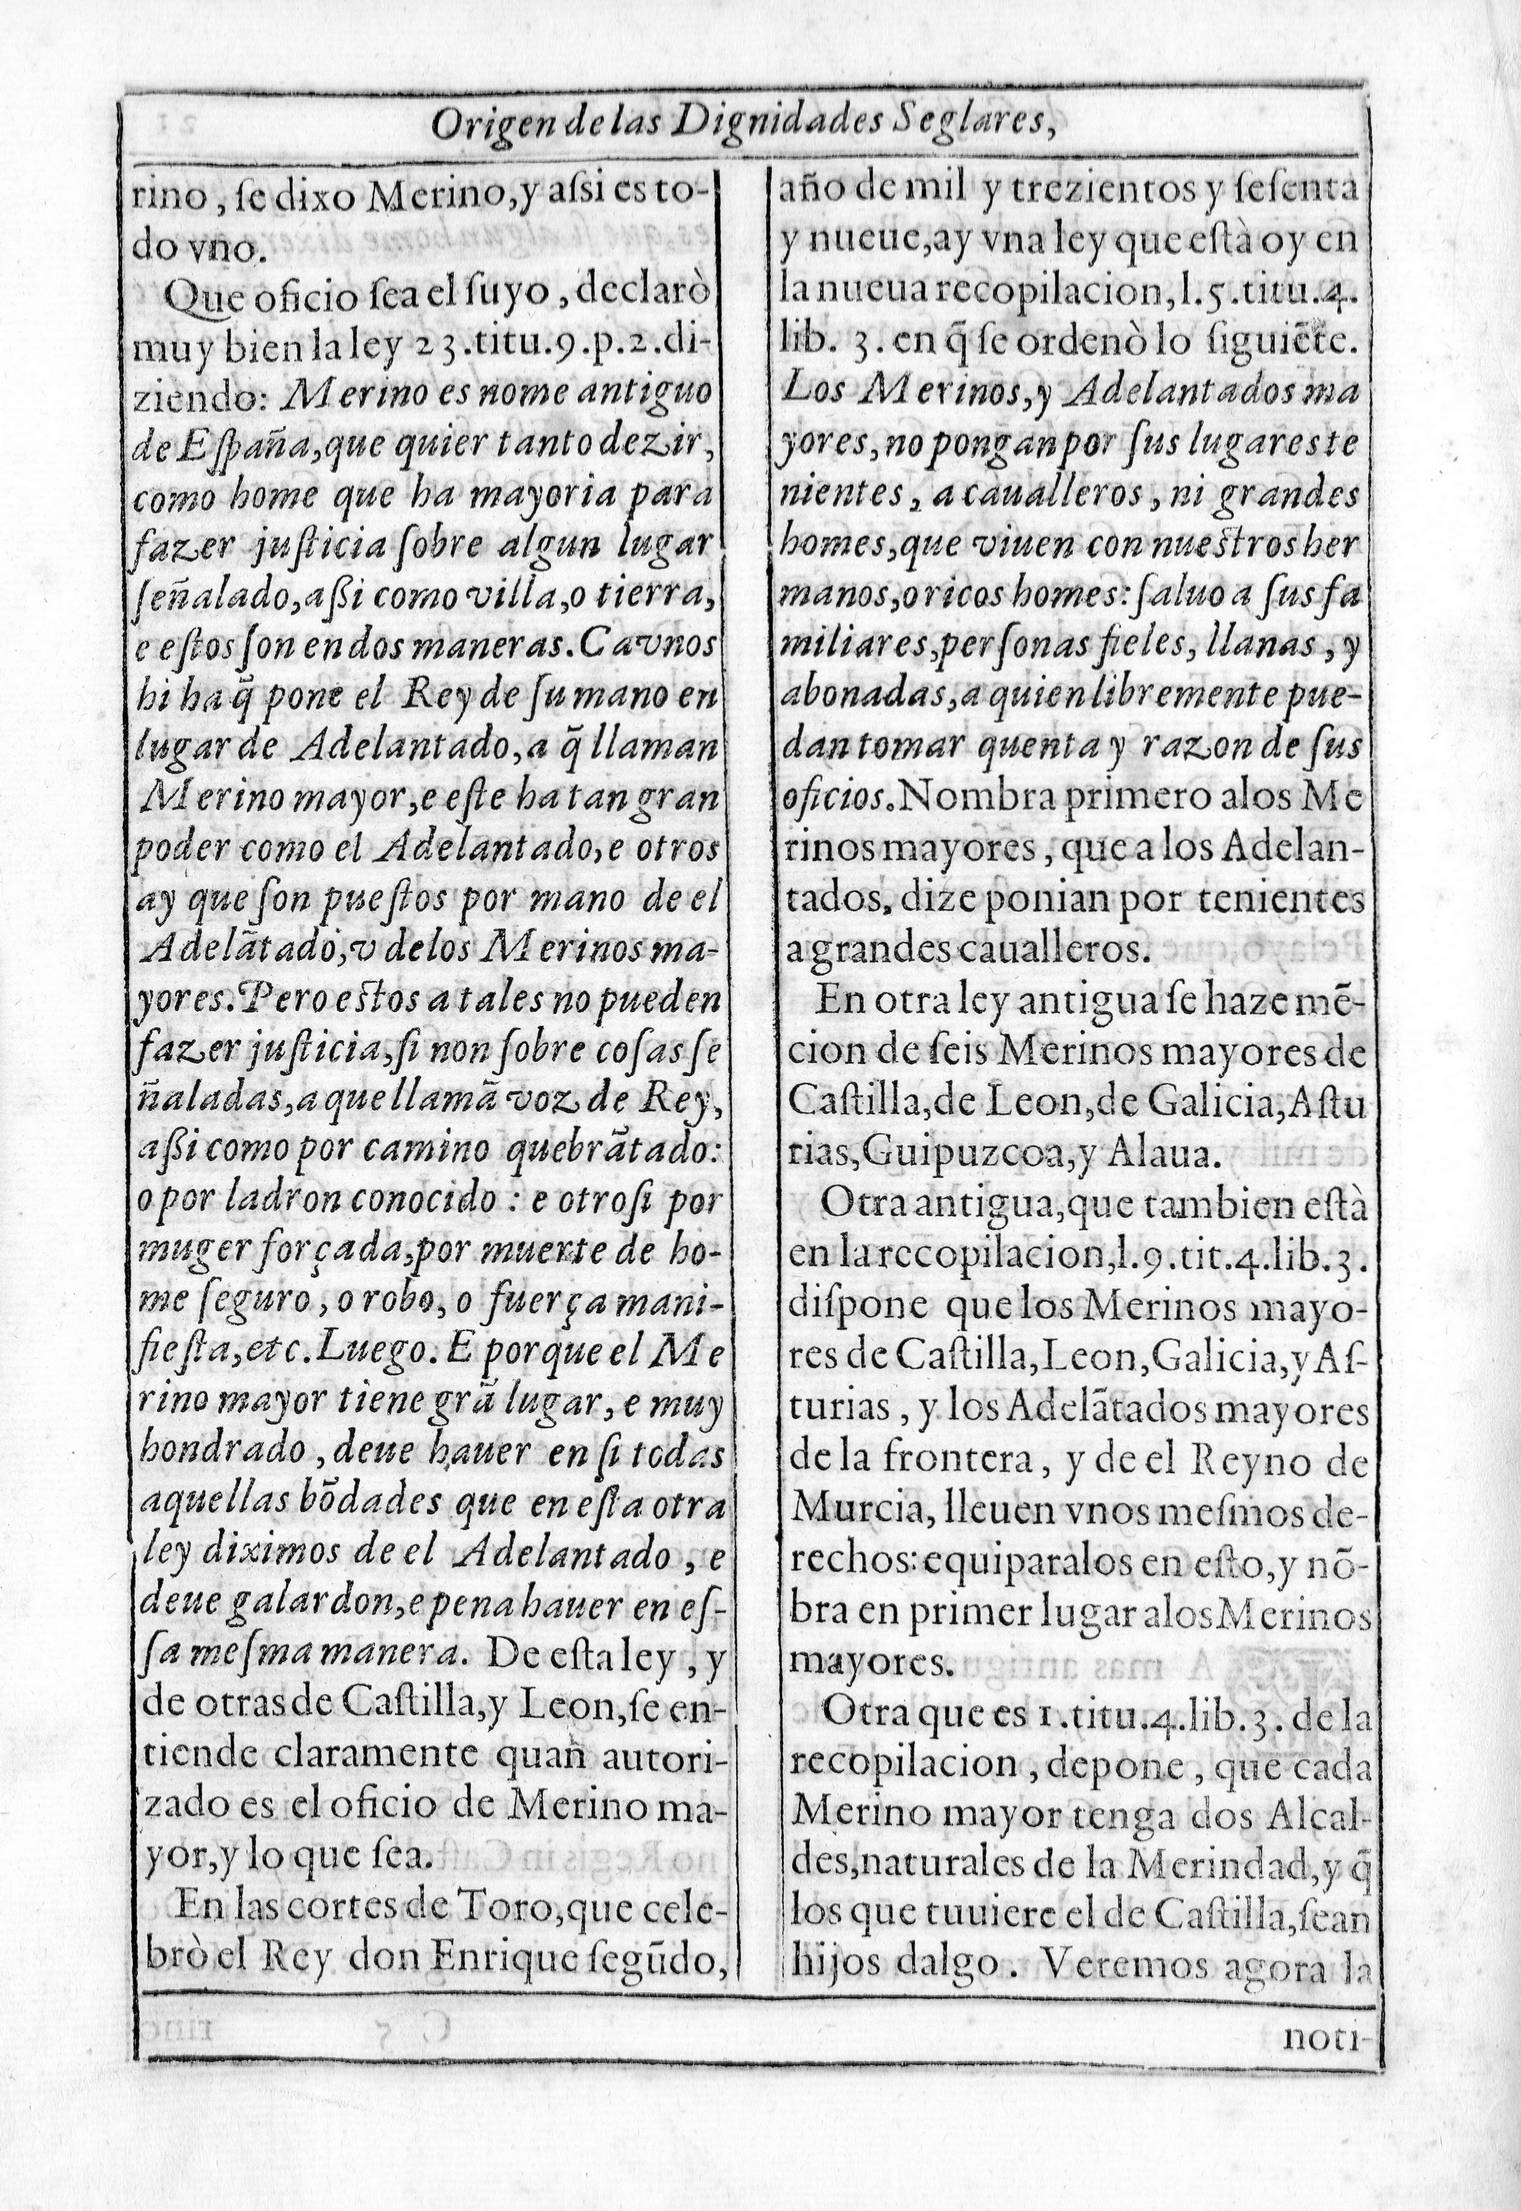 Origen de las Dignidades Seglares,
rino, ſe dixo Merino, y aſsi es to-
do vno.
Que oficio ſea el ſuyo, declarò
muy bien la ley 23.titu.9.p.2.di-
ziendo: Merino es nome antiguo
de Eſpaña, que quier tanto dezir,
como home que ha mayoria para
fazer juſticia ſobre algun lugar
ſeñalado, aßi como villa, o tierra,
e eſtos ſon en dos maneras. Ca vnos
hi ha q̃ pone el Rey de ſu mano en
lugar de Adelantado, a q̃ llaman
Merino mayor, e eſte ha tan gran
poder como el Adelantado, e otros
ay que ſon pueſtos por mano de el
Adelãtado, v delos Merinos ma-
yores. Pero eſtos a tales no pueden
fazer juſticia, ſi non ſobre coſas ſe
ñaladas, a que llamã voz de Rey,
aßi como por camino quebrãtado:
o por ladron conocido: e otroſi por
muger forçada, por muerte de ho-
me ſeguro, o robo, o fuerça mani-
fieſta, etc. Luego. E porque el Me
rino mayor tiene grã lugar, e muy
hondrado, deue hauer en ſi todas
aquellas bõdades que en eſta otra
ley diximos de el Adelantado, e
deue galardon, e pena hauer en eſ-
ſa meſma manera. De eſta ley, y
de otras de Caſtilla, y Leon, ſe en-
tiende claramente quan autori-
zado es el oficio de Merino ma-
yor, y lo que ſea.
En las cortes de Toro, que cele-
brò el Rey don Enrique ſegũdo,
año de mil y trezientos y ſeſenta
y nueue, ay vna ley que eſtà oy en
la nueua recopilacion, l.5.titu.4.
lib. 3. en q̃ ſe ordenò lo ſiguiẽte.
Los Merinos, y Adelantados ma
yores, no pongan por ſus lugares te
nientes, a caualleros, ni grandes
homes, que viuen con nueſtros her
manos, o ricos homes: ſaluo a ſus fa
miliares, perſonas fieles, llanas, y
abonadas, a quien libremente pue-
dan tomar quenta y razon de ſus
oficios. Nombra primero alos Me
rinos mayores, que a los Adelan-
tados, dize ponian por tenientes
a grandes caualleros.
En otra ley antigua ſe haze mẽ-
cion de ſeis Merinos mayores de
Caſtilla, de Leon, de Galicia, Aſtu
rias, Guipuzcoa, y Alaua.
Otra antigua, que tambien eſtà
en la recopilacion, l.9.tit.4.lib.3.
diſpone que los Merinos mayo-
res de Caſtilla, Leon, Galicia, y Aſ-
turias, y los Adelãtados mayores
de la frontera, y de el Reyno de
Murcia, lleuen vnos meſmos de-
rechos: equiparalos en eſto, y nõ-
bra en primer lugar alos Merinos
mayores.
Otra que es 1.titu.4.lib.3. de la
recopilacion, depone, que cada
Merino mayor tenga dos Alcal-
des, naturales de la Merindad, y q̃
los que tuuiere el de Caſtilla, ſean
hijos dalgo. Veremos agora la
noti-